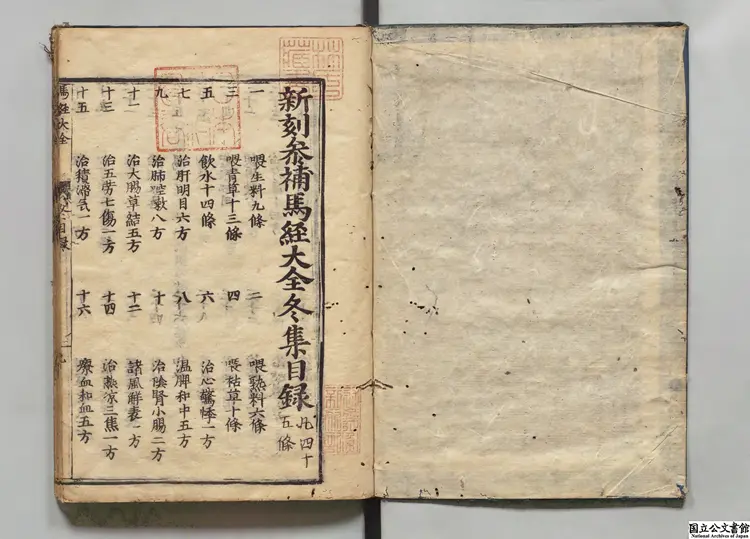 新刻參補馬經大全冬集目録 凡四十五條
一 喂生料九條 二 喂熟料六條
三 喂青草十三條 四 喂枯草十條
五 飲水十四條 六 治心驚悸一方
七 治肝明目六方 八 温脾和中五方
九 治肺咳嗽八方 十 治陰腎小腸二方
十一 治大腸草結五方 十二 諸風解表一方
十三 治五劳七傷一方 十四 治熱涼三焦一方
十五 治積滯氣一方 十六 療血和血五方
馬經大全
国立公文書館
National Archives of Japan